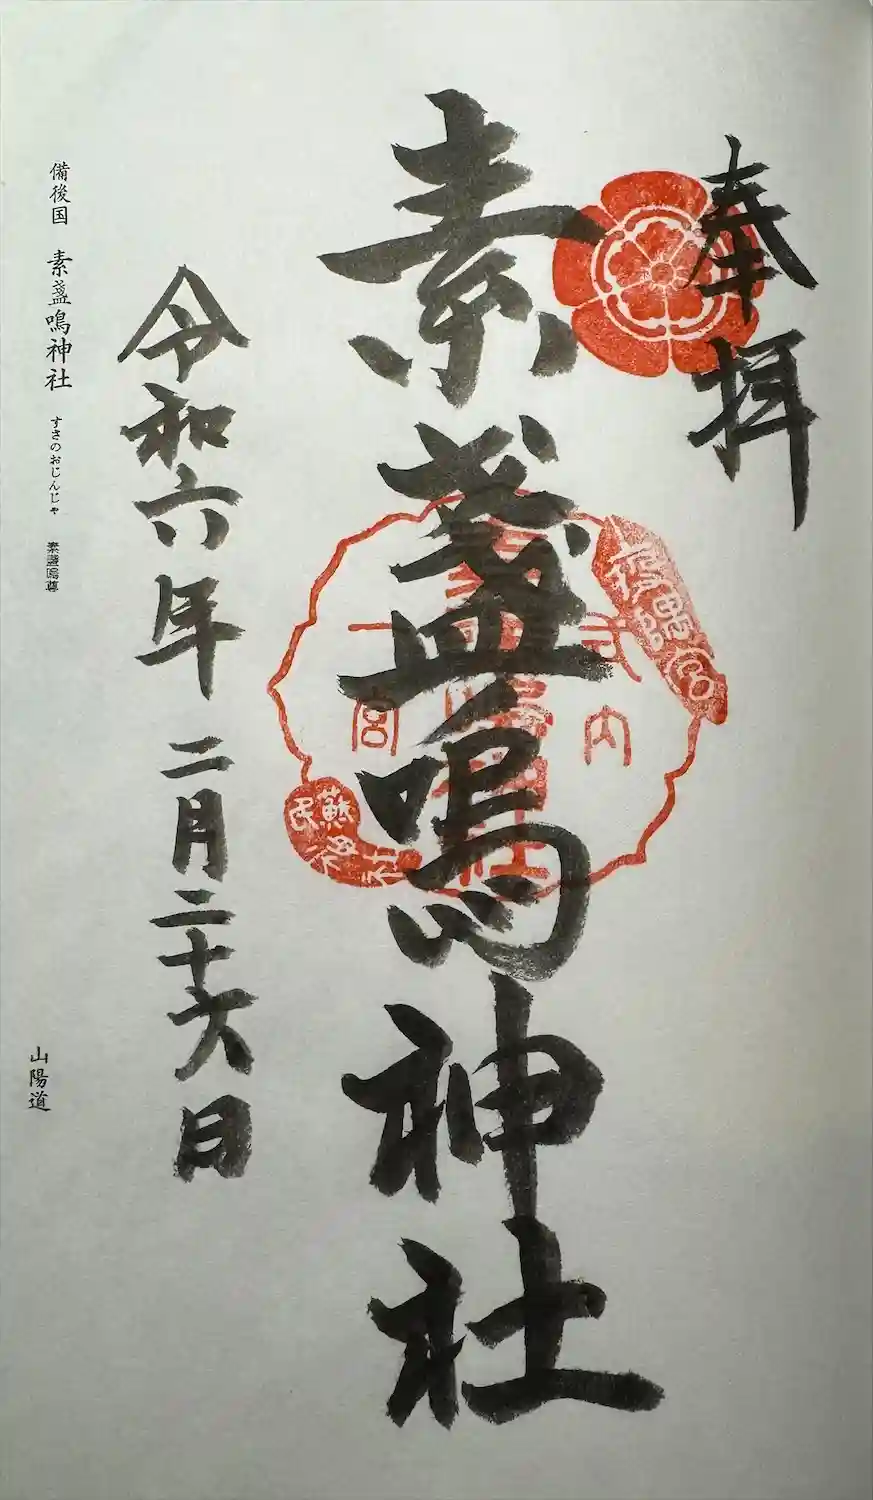 奉拝
素盞嗚神社
令和六年二月二十六日
備後国 素盞嗚神社 すさのおじんじゃ 素盞嗚尊
山陽道
式内
一宮
蘇民神社